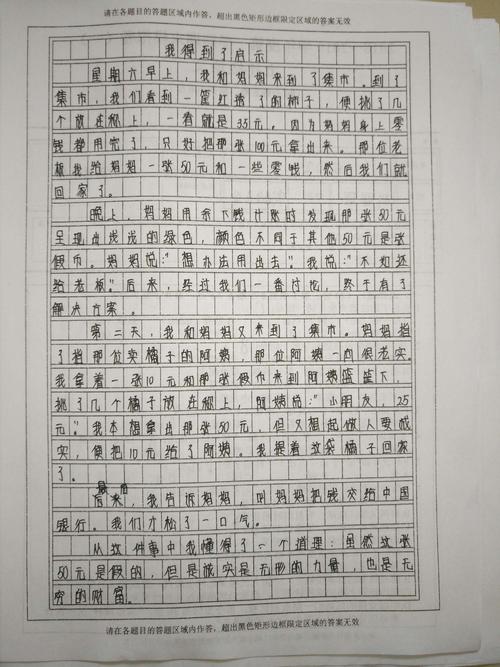 请在各题目的答题区域内作答，超出黑色矩形边框限定区域的答案无效
我得到了启示
星期六早上，我和妈妈来到了集市。到了
集市，我们看到一筐红透了的柿子，便挑了几
个放在秤上，一看就是35元。因为妈妈身上零
钱都用完了，只好把那张100元拿出来。那位老
板找给妈妈一张50元和一些零钱，然后我们就
回家了。
晚上，妈妈用余下钱计账时发现那张50元
呈现出浅浅的绿色，颜色不同于其他50元是张
假币。妈妈说："想办法用出去！"我说："不如还
给老板"后来，经过我们一番讨论，终于有了
解决方案。
第二天，我和妈妈又来到了集市。妈妈指
了指那位卖橘子的阿姨，那位阿姨一向很老实。
我拿着一张10元和那张假币来到阿姨篮筐下，
挑了几个橘子放在秤上，阿姨说："小朋友，25
元"我本想拿出那张50元，但又想起做人要诚
实，便把10元给了阿姨。我提着这袋橘子回家
了。
最后
后来，我告诉妈妈，叫妈妈把钱交给中国
银行。我们才松了一口气。
从这件事中我懂得了一个道理：虽然这张
50元是假的，但是诚实是无形的力量，也是无
穷的财富。
请在各题目的答题区域内作答，超出黑色矩形边框限定区域的答案无效